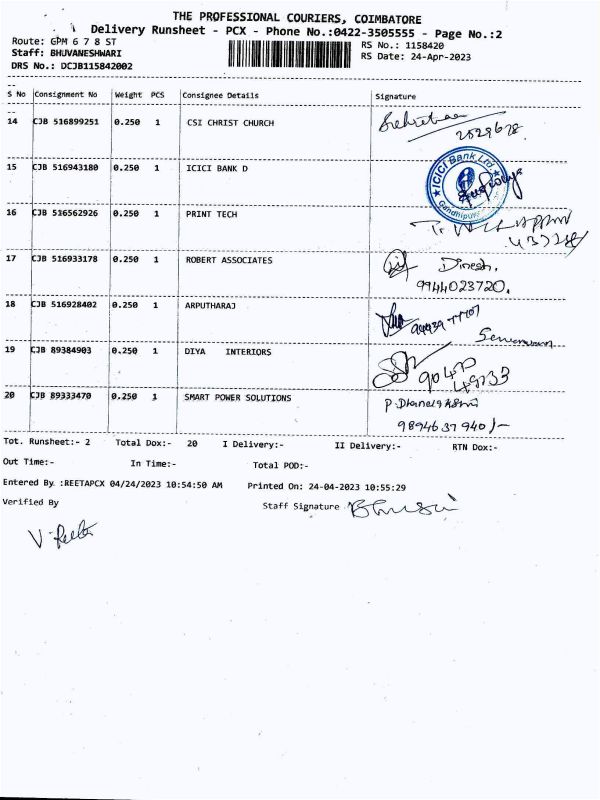 THE PROFESSIONAL COURIERS, COIMBATORE
Delivery Runsheet - PCX - Phone No.:0422-3505555 - Page No.:2
Route: GPM 6 7 8 ST RS No.: 1158420
Staff: BHUVANESHWARI RS Date: 24-Apr-2023
DRS No.: DCJB115842002
S No Consignment No Weight PCS Consignee Details Signature
14 CJB 516899251 0.250 1 CSI CHRIST CHURCH
2529678
15 CJB 516943180 0.250 1 ICICI BANK D
ICICI Bank Ltd.
16 CJB 516562926 0.250 1 PRINT TECH
17 CJB 516933178 0.250 1 ROBERT ASSOCIATES Dinesh.
9944023720.
18 CJB 516928402 0.250 1 ARPUTHARAJ
19 CJB 89384903 0.250 1 DIYA INTERIORS
20 CJB 89333470 0.250 1 SMART POWER SOLUTIONS
9894637940/-
Tot. Runsheet:- 2 Total Dox:- 20 I Delivery:- II Delivery:- RTN Dox:-
Out Time:- In Time:- Total POD:-
Entered By :REETAPCX 04/24/2023 10:54:50 AM Printed On: 24-04-2023 10:55:29
Verified By Staff Signature